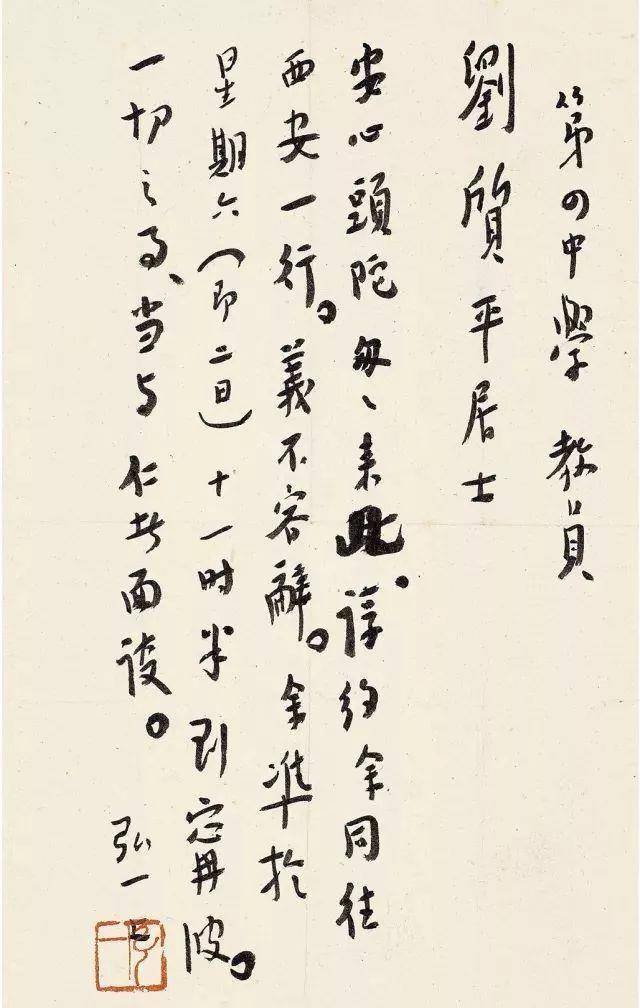 第四中學 教員
劉質平居士
安心頭陀匆〻來此。諄約余同往
西安一行。義不容辭。余準於
星期六(即二日)十一时半到甯波。
一切之事、当与 仁者面談。
弘一